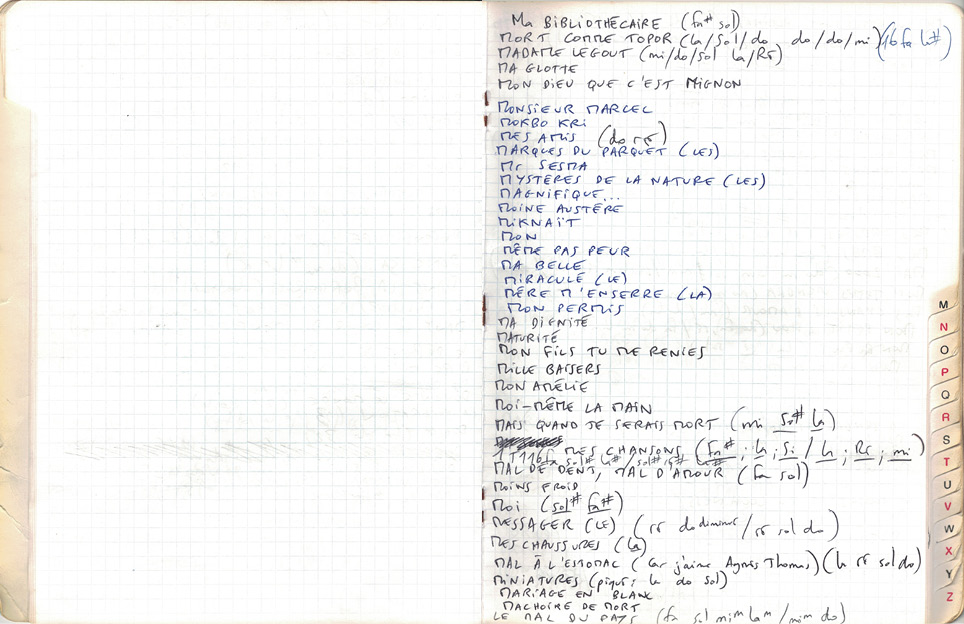 Ma BIBLIOTHÉCAIRE (fa# sol)
MORT COMME TOPOR (la/sol/do do/do/mi)
MADAME LEGOUT (mi/do/sol la/Ré)
MA GLOTTE
MON DIEU QUE C'EST MIGNON
MONSIEUR MARCEL
MOKBO KRI
MES AMIS (do ré)
MARQUES DU PARQUET (LES)
Mr SESMA
MYSTÈRES DE LA NATURE (LES)
MAGNIFIQUE...
MOINE AUSTÈRE
MIKNAÏT
MON
MÊME PAS PEUR
MA BELLE
MIRACULÉ (LE)
MÈRE M'ENSERRE (LA)
MON PERMIS
MA DIGNITÉ
MATURITÉ
MON FILS TU ME RENIES
MILLE BAISERS
MON AMÉLIE
MOI-MÊME LA MAIN
MAIS QUAND JE SERAIS MORT (mi sol# la)
MES CHANSONS (fa#; la; Si / la; Ré; mi)
MAL DE DENT, MAL D'AMOUR (fa sol)
MOINS FROID
MOI (sol# fa#)
MESSAGER (LE) (ré do diminué / ré sol do)
MES CHAUSSURES (la)
MAL À L'ESTOMAC (Car j'aime Agnès Thomas) (la ré sol do)
MINIATURES (la do sol)
MARIAGE EN BLANC
MACHOIRE DE MORT
LE MAL DU PAYS (fa sol mim lam / mim do)
M
N
O
P
Q
R
S
T
U
V
W
X
Y
Z